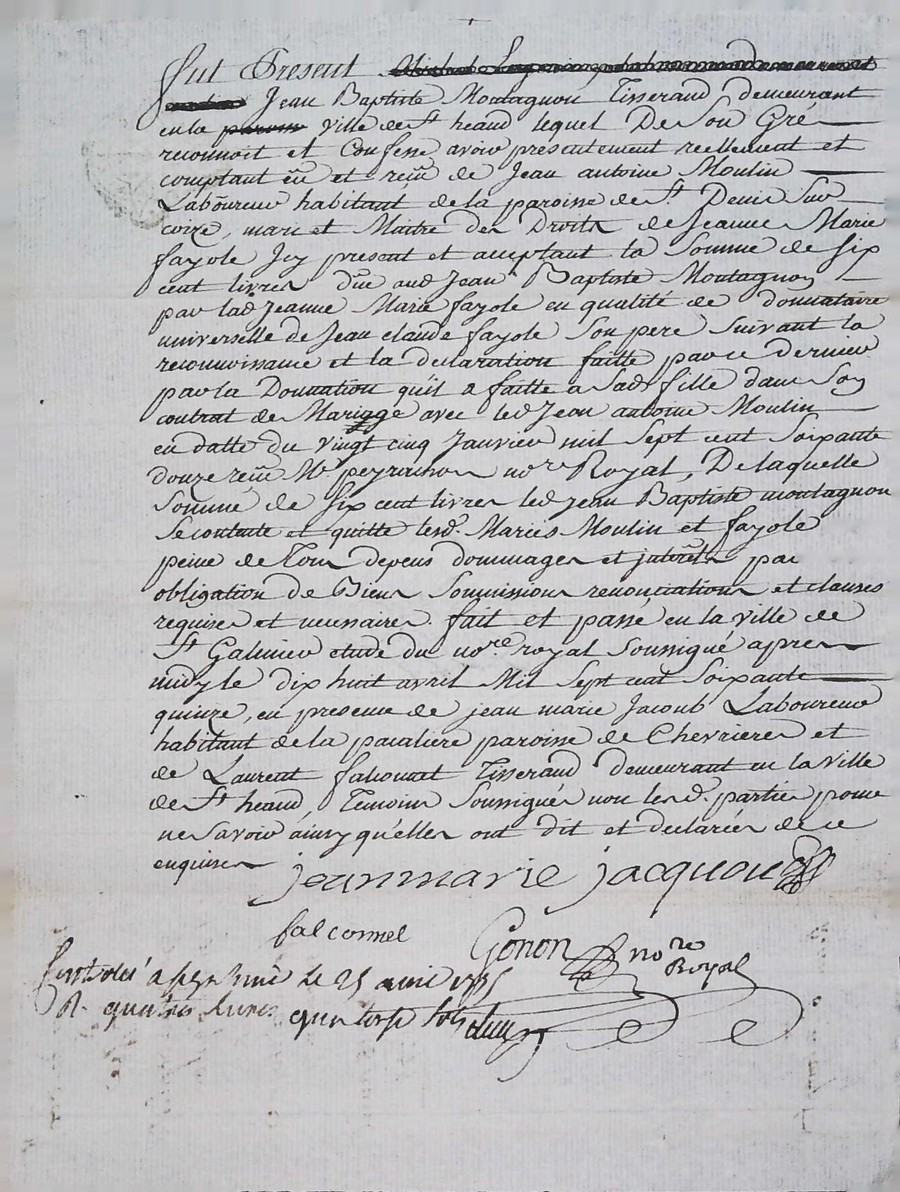 fut Present
Jean Baptiste Montagnon Tisserand demeurant
en la ville de St heand lequel De Son Gré
reconnoit et Confesse avoir presentement reellement et
comptant eu et reçu de Jean antoine Moulin
Laboureur habitant de la paroisse de St Denis Sur
coize, mari et Maitre des Droits de Jeanne Marie
fayole Icy present et acceptant la Somme de Six
cent livres düe aud Jean Baptiste Montagnon
par lad Jeanne Marie fayole en qualité de donnataire
universelle de Jean claude fayole Son pere Suivant la
reconnoissance et la declaration faitte par ce dernier
par la Donnation qu'il a faitte a Sad fille dans Son
contrat de Mariage avec led Jean antoine Moulin
en datte du vingt cinq Janvier mil Sept cent Soixante
douze reçu Me peyrachon nore Royal, De laquelle
Somme de Six cent livres led jean Baptiste montagnon
Se contente et quitte lesd. Mariés Moulin et fayole
peine de Tous depens dommages et interets par
obligation de Biens Soumissions renonciations et clauses
requises et necessaires. fait et passé en la ville de
St Galmier etude du nore royal Soussigné apres
midy le dix huit avril Mil Sept cent Soixante
quinze, en presence de jean marie Jacoud Laboureur
habitant de la paroisse de Chevrieres et
de Laurent falconnet Tisserand demeurant en la ville
de St heand, Temoins Soussignés non lesd. parties pour
ne Savoir ainsy qu'elles ont dit et declarées de ce
enquises
jean marie jacquou
falconnel
Gonon nore
Royal
le 25 avril 1775
R. quatre livres quatorze sols